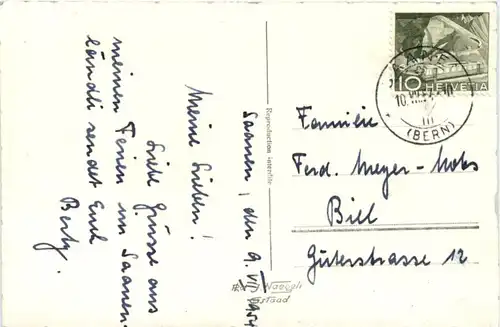 Saanen, den 9. VII 1954
Meine Lieben!
Liebe Grüsse aus
meinen Ferien im Saanen-
ländli sendet Euch
Berty.
Reproduction interdite
Gstaad
10 HELVETIA
(BERN)
Familie
Ferd. Meyer-
Biel
Güterstrasse 12